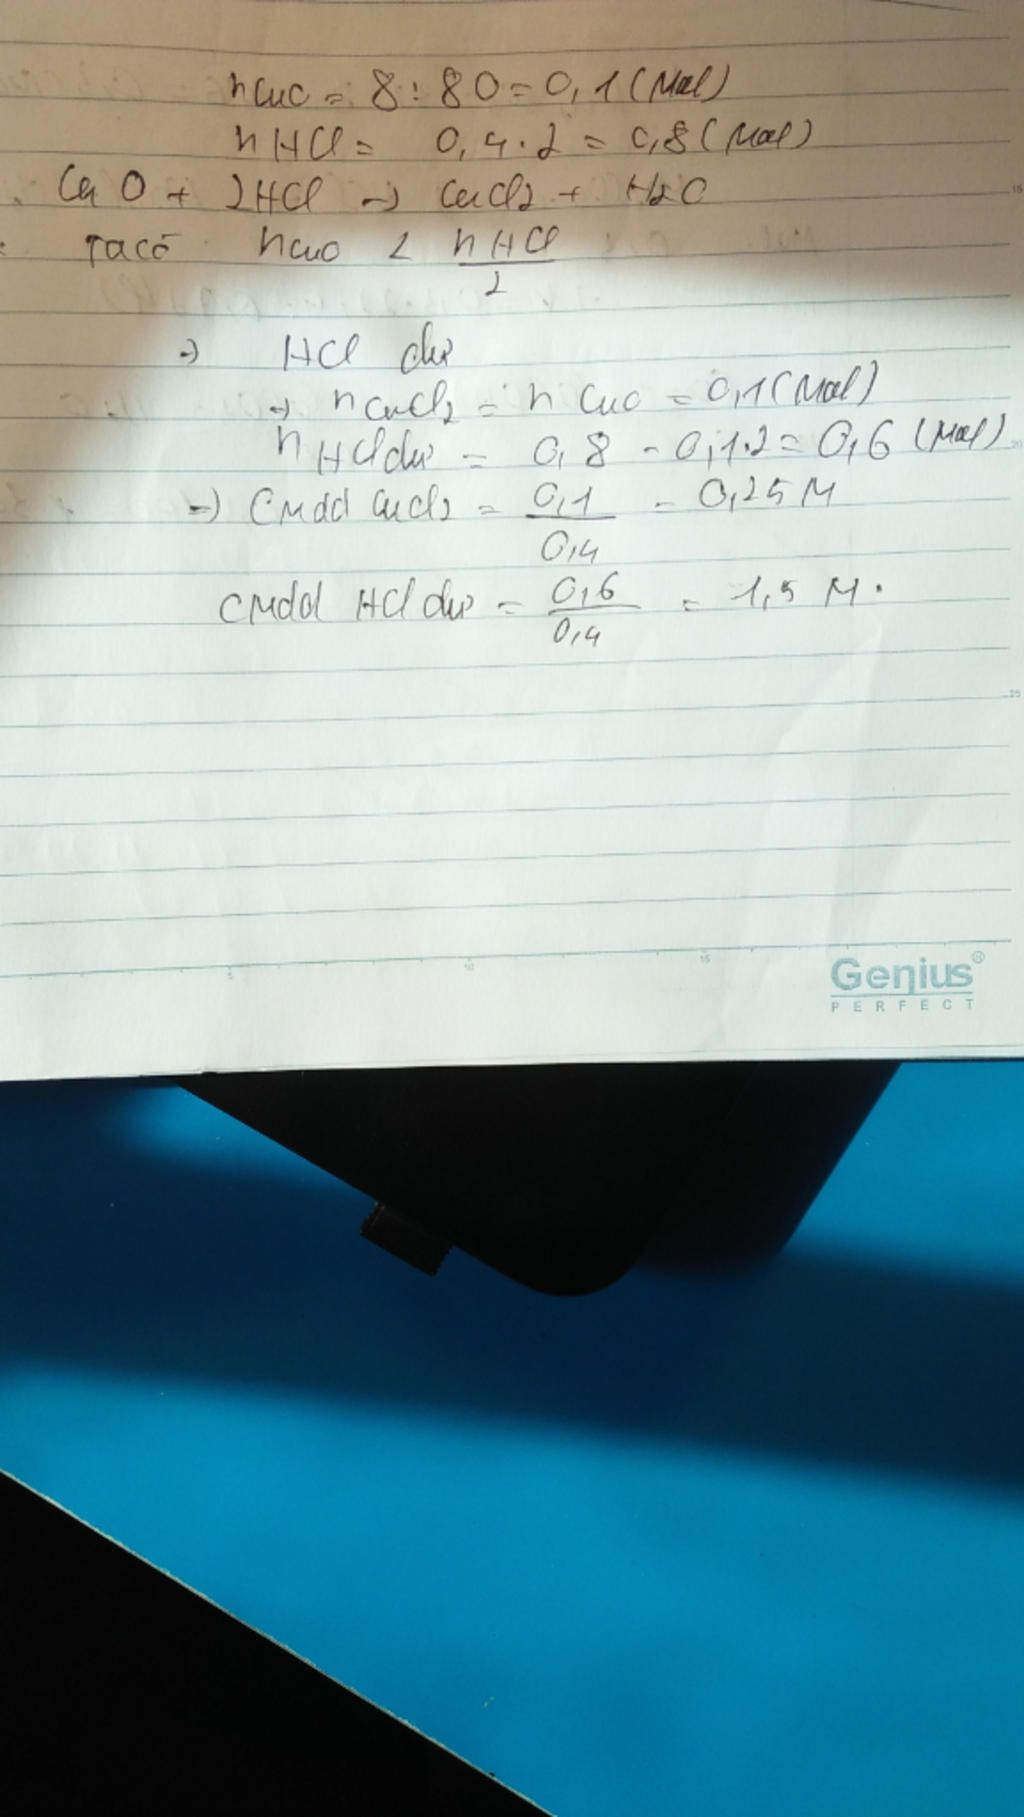 nCuO = 8 : 80 = 0,1 (Mol)
nHCl = 0,4 . 2 = 0,8 (Mol)
CuO + 2HCl -> CuCl2 + H2O
Ta có nCuO < nHCl/2
-> HCl dư
-> nCuCl2 = nCuO = 0,1 (Mol)
nHCl dư = 0,8 - 0,1.2 = 0,6 (Mol)
-> CMdd CuCl2 = 0,1/0,4 = 0,25 M
CMdd HCl dư = 0,6/0,4 = 1,5 M.
15
20
25
5 10 15
Genius®
PERFECT